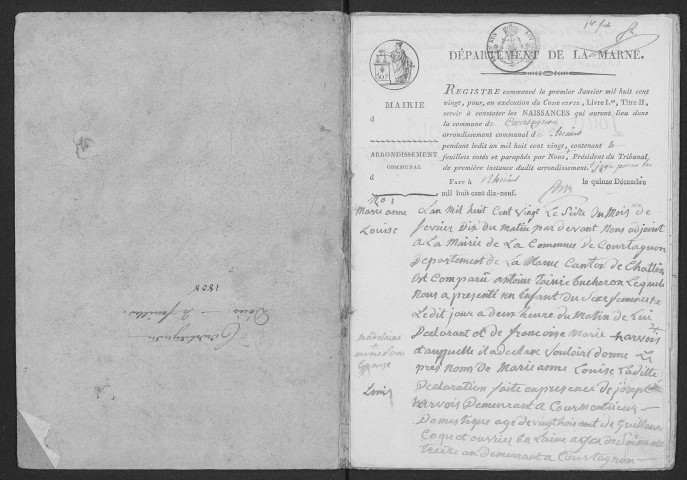 DÉPARTEMENT DE LA MARNE.
REGISTRE commencé le premier Janvier mil huit cent
vingt, pour, en exécution du CODE CIVIL, Livre I.er, Titre II,
servir à constater les NAISSANCES qui auront lieu dans
la commune de Courtagnon
arrondissement communal de Reims
pendant ledit an mil huit cent vingt, contenant 4
feuillets cotés et paraphés par Nous, Président du Tribunal
de première instance dudit arrondissement.
FAIT à Reims le quinze Décembre
mil huit cent dix-neuf.
MAIRIE
d
ARRONDISSEMENT
COMMUNAL
d
No 1
Marie anne
Louise
L'an mil huit Cent vingt Le Seize du Mois de
fevrier Dix du matin par devant Nous adjoint
a La Mairie de La Commune de Courtagnon
Departement de La Marne Canton de Chatillon
Est Comparu antoine bucheron Lequel
Nous a presenté un Enfant du Sexe feminin
Le dit jour a deux heure du Matin de Lui
Declarant et de francoise Marie harvois
a Laquelle il a declare vouloir donne Les
pres Noms de Marie anne Louise La ditte
Declaration faite en presence de joseph
harvois Demeurant a Courmontrieux
Domestique age de vingt trois ans de Guillaume
Coquet ouvrier En Laine agé de Soixante
treize an demeurant a Courtagnon
Courtagnon
Décès
1808